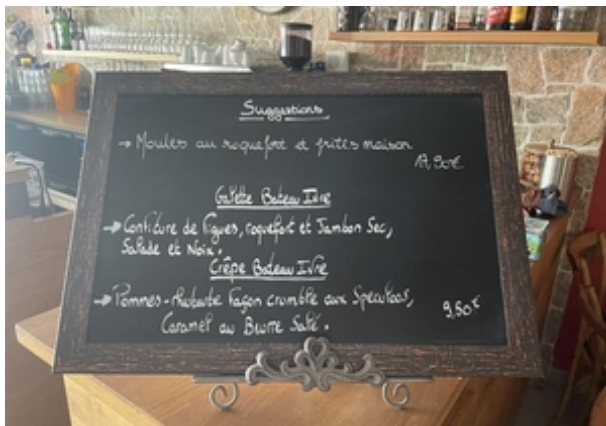 Suggestions
→ Moules au roquefort et frites maison
17,90€
Galette Bateau Ivre
→ Confiture de figues, roquefort et Jambon Sec,
Salade et Noix.
Crêpe Bateau Ivre
→ Pommes-rhubarbe façon crumble aux Speculoos,
9,50€
Caramel au Beurre Salé.